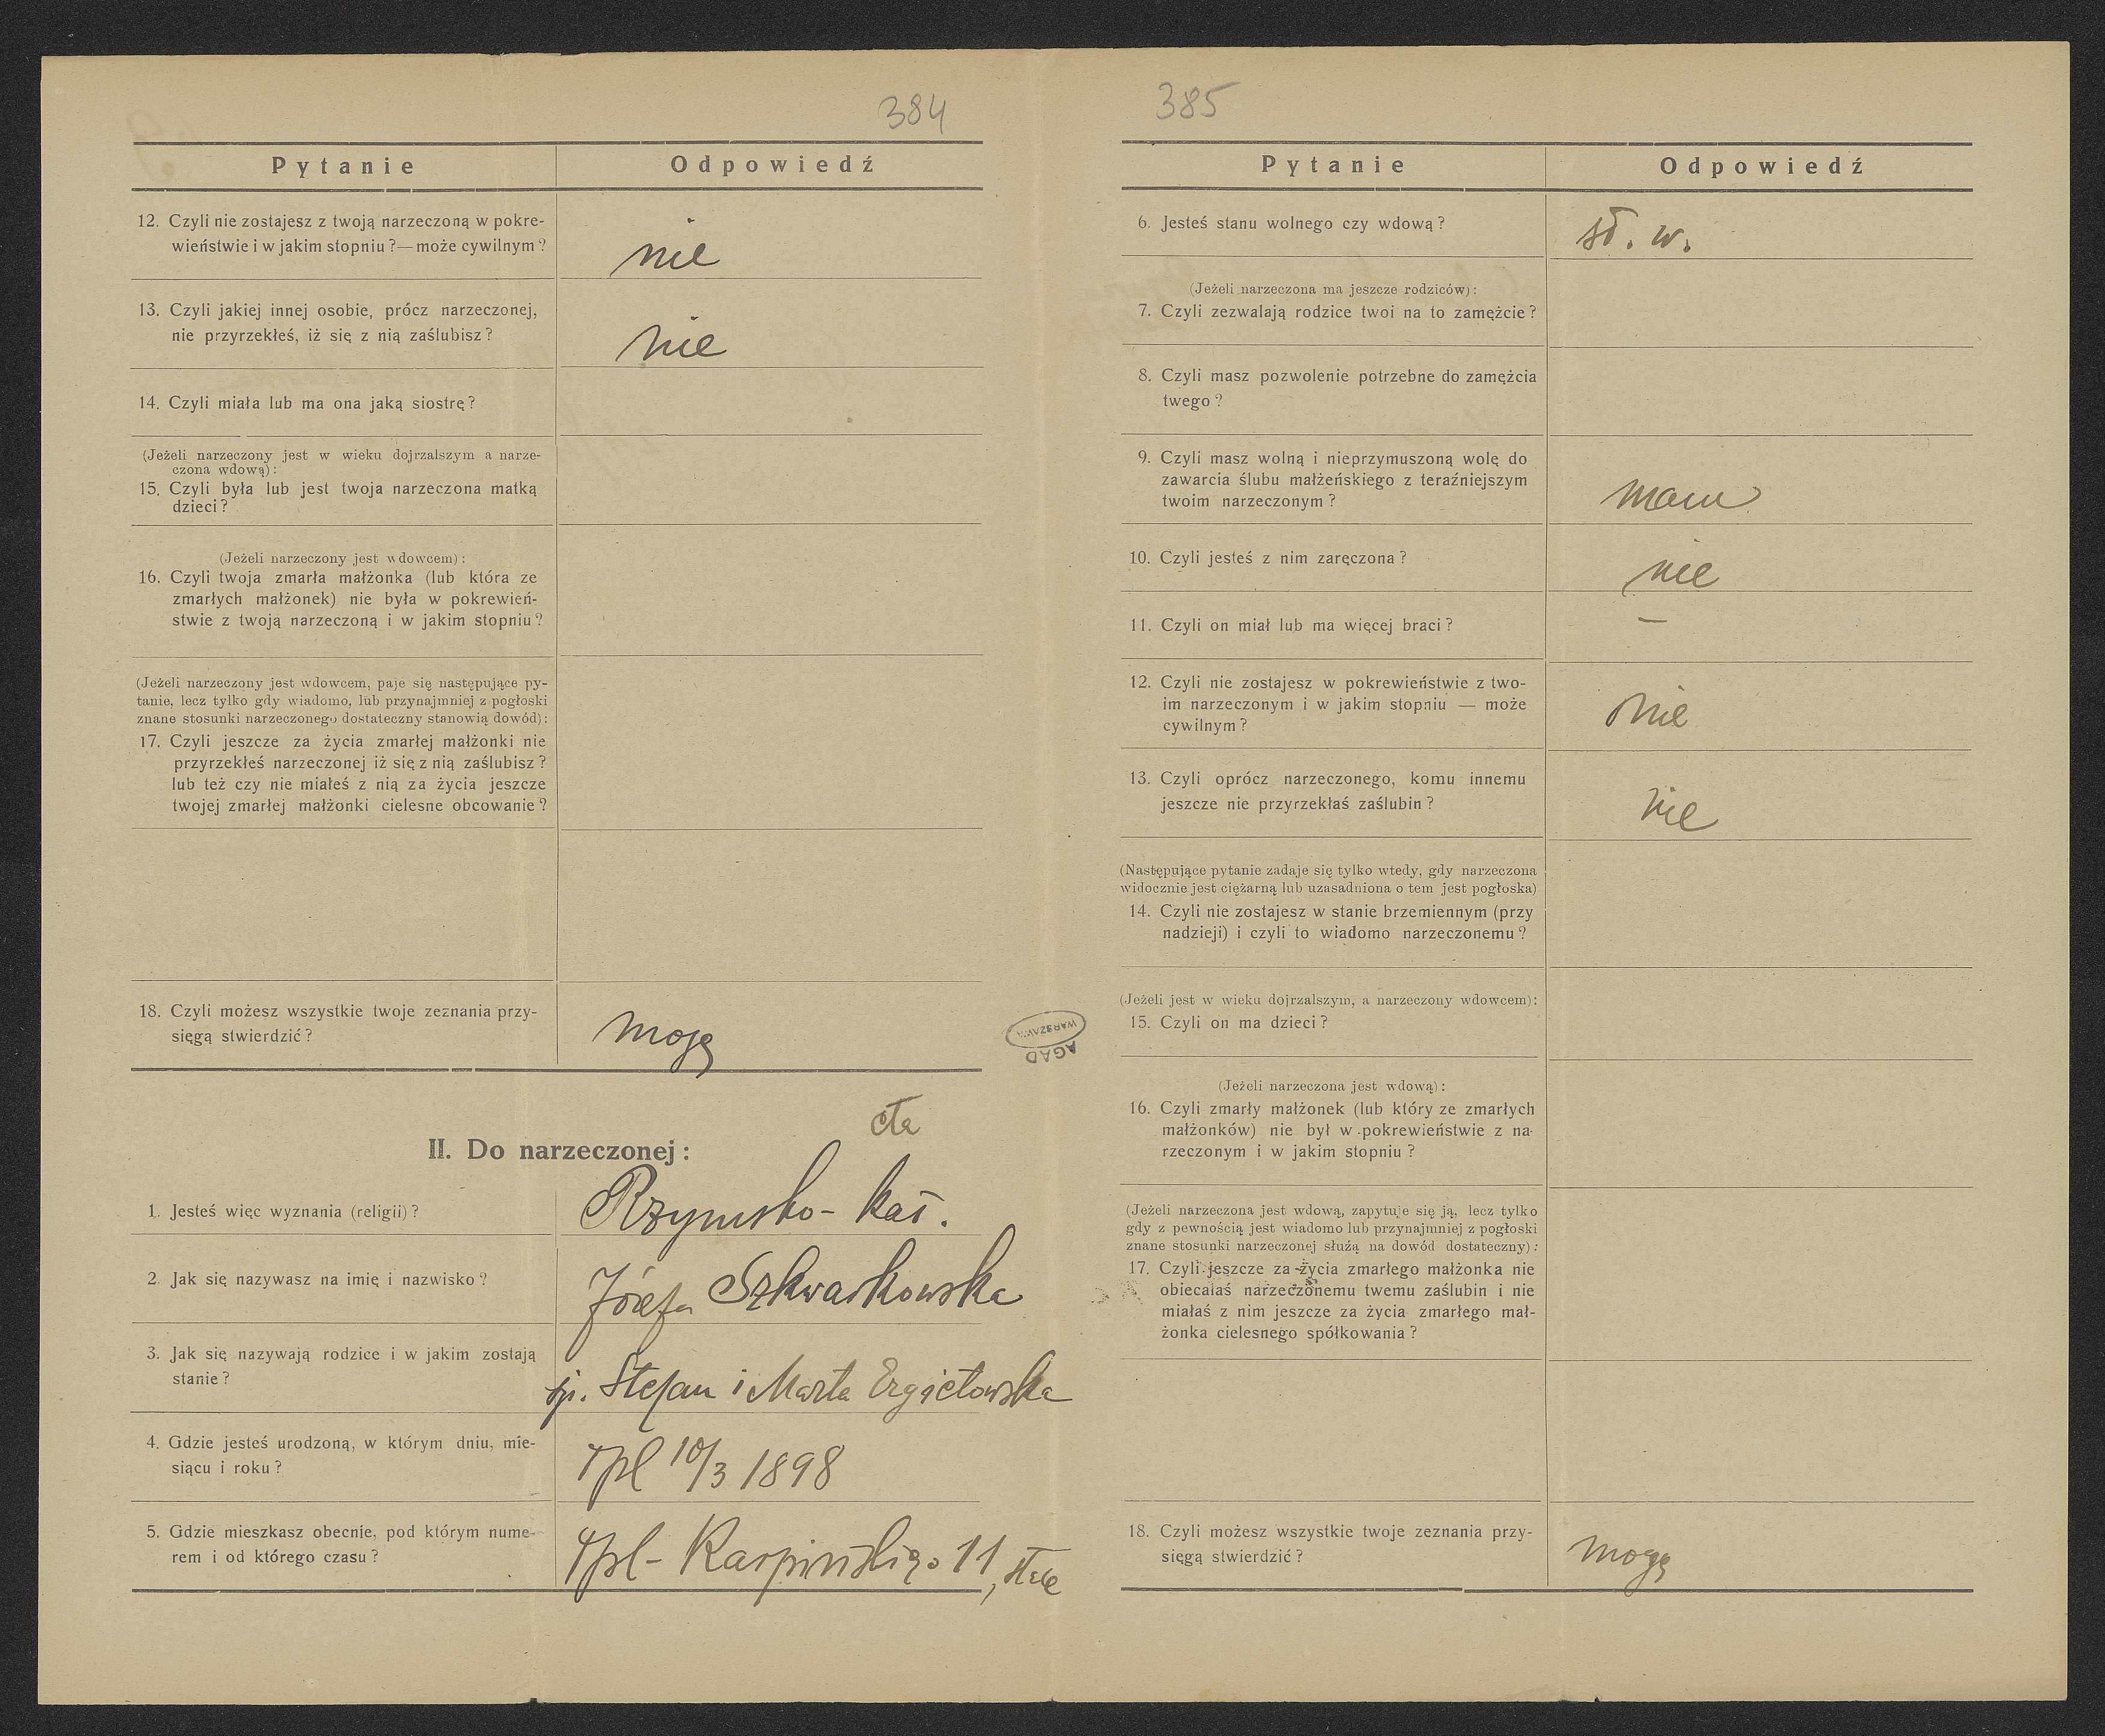 384
Pytanie Odpowiedź
12. Czyli nie zostajesz z twoją narzeczoną w pokre-
wieństwie i w jakim stopniu?—może cywilnym?
nie
13. Czyli jakiej innej osobie, prócz narzeczonej,
nie przyrzekłeś, iż się z nią zaślubisz?
nie
14. Czyli miała lub ma ona jaką siostrę?
(Jeżeli narzeczony jest w wieku dojrzalszym a narze-
czona wdową):
15. Czyli była lub jest twoja narzeczona matką
dzieci?
(Jeżeli narzeczony jest wdowcem):
16. Czyli twoja zmarła małżonka (lub która ze
zmarłych małżonek) nie była w pokrewień-
stwie z twoją narzeczoną i w jakim stopniu?
(Jeżeli narzeczony jest wdowcem, paje się następujące py-
tanie, lecz tylko gdy wiadomo, lub przynajmniej z pogłoski
znane stosunki narzeczonego dostateczny stanowią dowód):
17. Czyli jeszcze za życia zmarłej małżonki nie
przyrzekłeś narzeczonej iż się z nią zaślubisz?
lub też czy nie miałeś z nią za życia jeszcze
twojej zmarłej małżonki cielesne obcowanie?
18. Czyli możesz wszystkie twoje zeznania przy-
sięgą stwierdzić?
mogę
II. Do narzeczonej:
1. Jesteś więc wyznania (religii)?
Rzymsko-kat.
2. Jak się nazywasz na imię i nazwisko?
Józefa Szkwarkowska
3. Jak się nazywają rodzice i w jakim zostają
stanie?
śp. Stefan i Marta
4. Gdzie jesteś urodzoną, w którym dniu, mie-
siącu i roku?
Tpl 10/3 1898
5. Gdzie mieszkasz obecnie, pod którym nume-
rem i od którego czasu?
Tpl - Karpińskiego 11, stale
AGAD
WARSZAWA
385
Pytanie Odpowiedź
6. Jesteś stanu wolnego czy wdową?
st. w.
(Jeżeli narzeczona ma jeszcze rodziców):
7. Czyli zezwalają rodzice twoi na to zamężcie?
8. Czyli masz pozwolenie potrzebne do zamężcia
twego?
9. Czyli masz wolną i nieprzymuszoną wolę do
zawarcia ślubu małżeńskiego z teraźniejszym
twoim narzeczonym?
mam
10. Czyli jesteś z nim zaręczona?
nie
11. Czyli on miał lub ma więcej braci?
–
12. Czyli nie zostajesz w pokrewieństwie z two-
im narzeczonym i w jakim stopniu — może
cywilnym?
nie
13. Czyli oprócz narzeczonego, komu innemu
jeszcze nie przyrzekłaś zaślubin?
nie
(Następujące pytanie zadaje się tylko wtedy, gdy narzeczona
widocznie jest ciężarną lub uzasadniona o tem jest pogłoska)
14. Czyli nie zostajesz w stanie brzemiennym (przy
nadzieji) i czyli to wiadomo narzeczonemu?
(Jeżeli jest w wieku dojrzalszym, a narzeczony wdowcem):
15. Czyli on ma dzieci?
(Jeżeli narzeczona jest wdową):
16. Czyli zmarły małżonek (lub który ze zmarłych
małżonków) nie był w pokrewieństwie z na-
rzeczonym i w jakim stopniu?
(Jeżeli narzeczona jest wdową, zapytuje się ją, lecz tylko
gdy z pewnością jest wiadomo lub przynajmniej z pogłoski
znane stosunki narzeczonej służą na dowód dostateczny):
17. Czyli jeszcze za życia zmarłego małżonka nie
obiecałaś narzeczonemu twemu zaślubin i nie
miałaś z nim jeszcze za życia zmarłego mał-
żonka cielesnego spółkowania?
18. Czyli możesz wszystkie twoje zeznania przy-
sięgą stwierdzić?
mogę